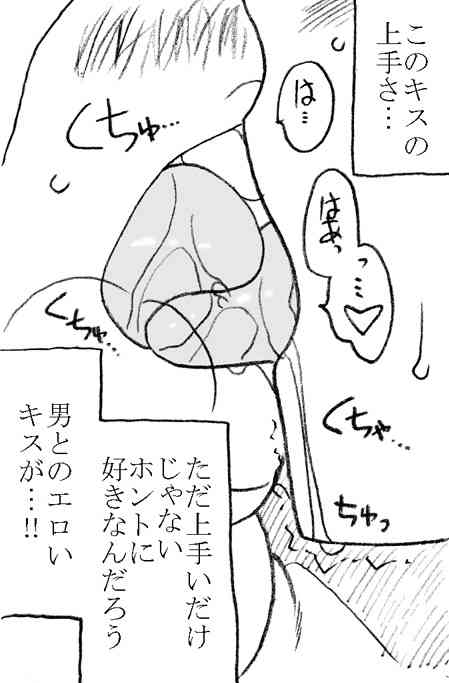 このキスの
上手さ…
は…
はぁっ
っ…♡
くちゅ…
くちゅ…
くちゃ…
ちゅっ
ただ上手いだけ
じゃない
ホントに
好きなんだろう
男とのエロい
キスが…!!